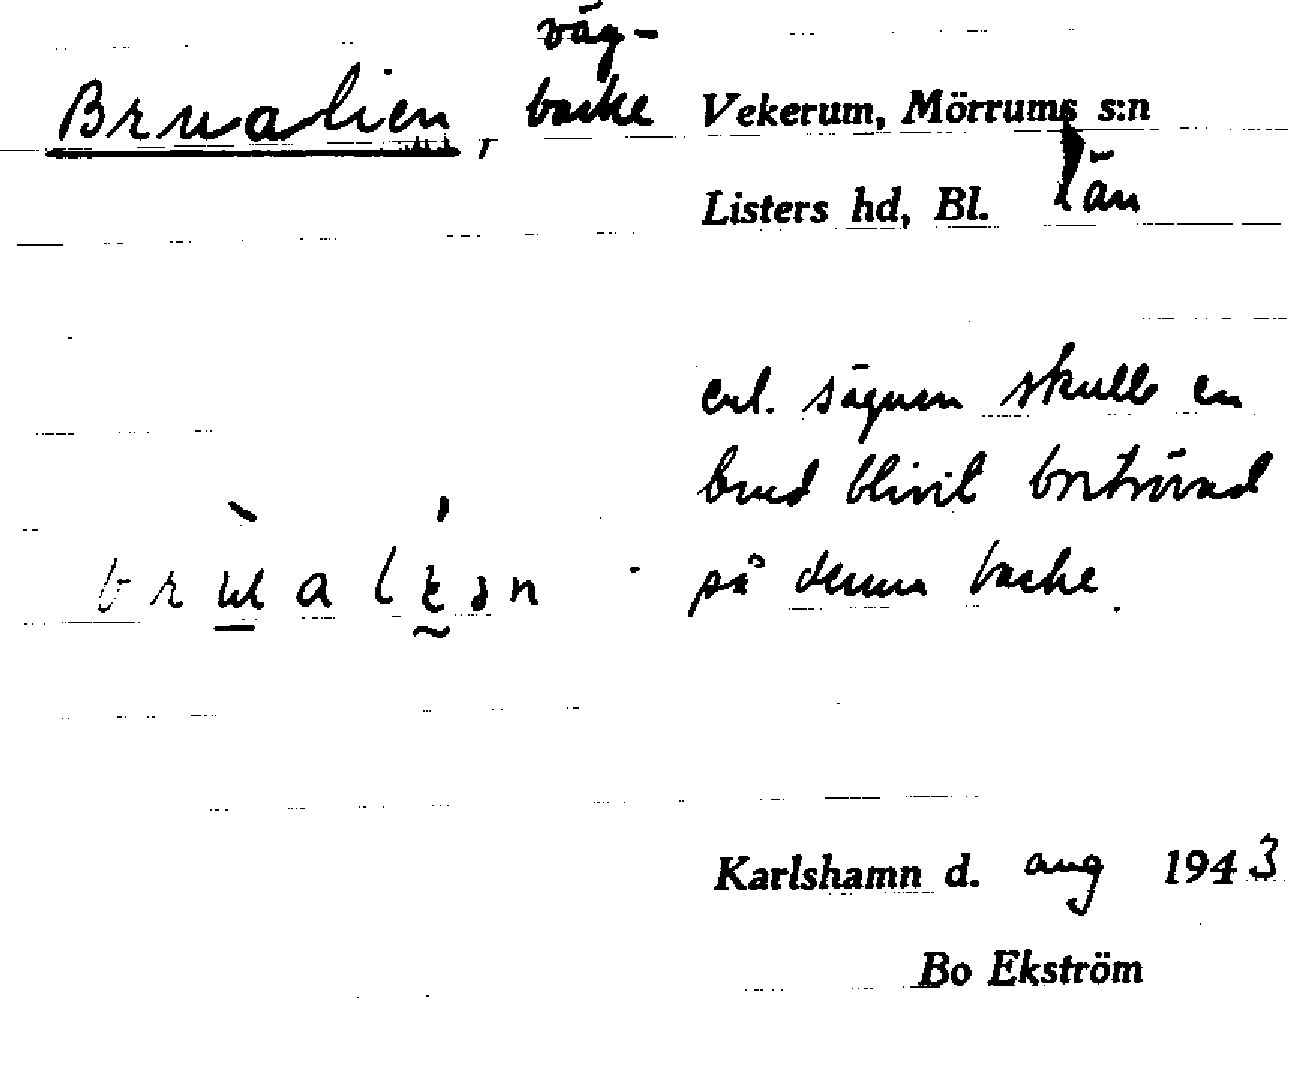 väg-
Brualien, backe Vekerum, Mörrums s:n
Listers hd, Bl. län
enl. sägnen skulle en
brud blivit bortrövad
på denna backe.
Karlshamn d. aug 1943
Bo Ekström